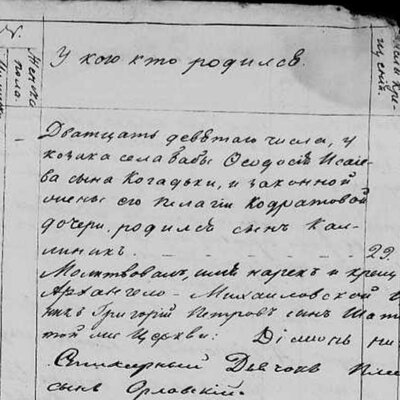 У кого кто родился.
Женска
пола.
Дватцать девятаго числа, у
козака села Бабы Феодосія Исае-
ва сына Когадьки, и законной
жены его Пелагіи Кодратовой
дочери, родился сынъ Кал-
линикъ 29.
Молитвовалъ, имя нарекъ и крещ
Архангело-Михаиловской
Григорій Петровъ сынъ Шат
той же Церкви:
Стихарный Дьячокъ
сынъ Орловскій.